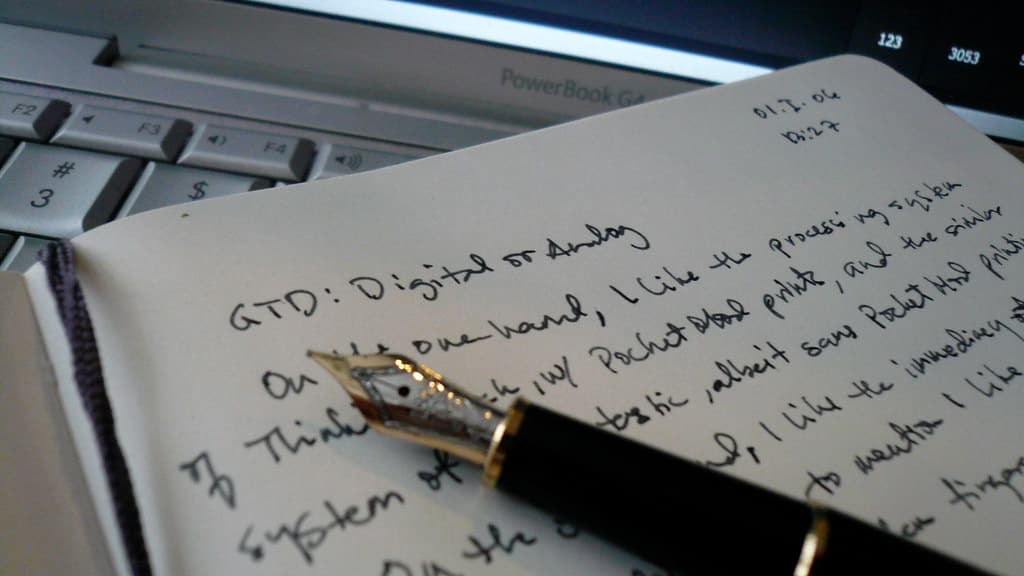 123
3053
PowerBook G4
F2
F3
F4
#
3
$
01.I.06
GTD: Digital or Analog
On the one hand, I like the processing system
of Think , w/ PocketMod prints, and the similar
system of tastic, albeit sans PocketMod printi
On the nd, I like the immediacy of
to mention I like
finger